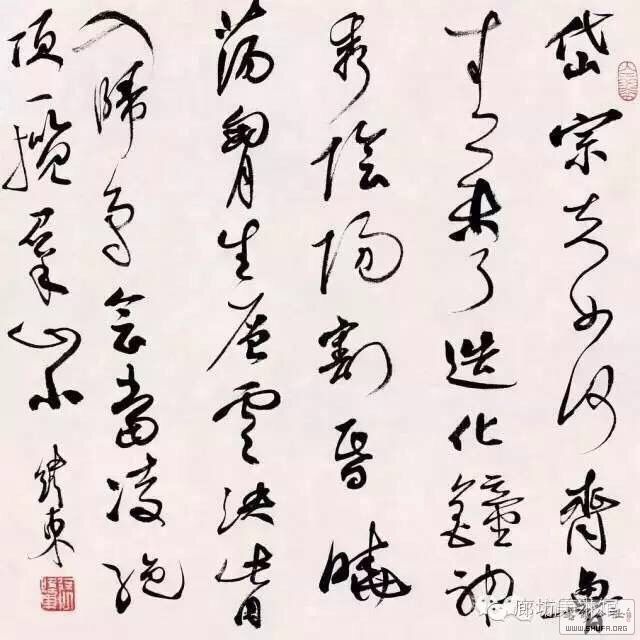 岱宗夫如何齊魯
青未了造化鐘神
秀陰陽割昏曉
蕩胷生層雲決眥
入歸鳥會當凌絕
頂一攬羣山小
東
廊坊
WWW.SHUFA.ORG